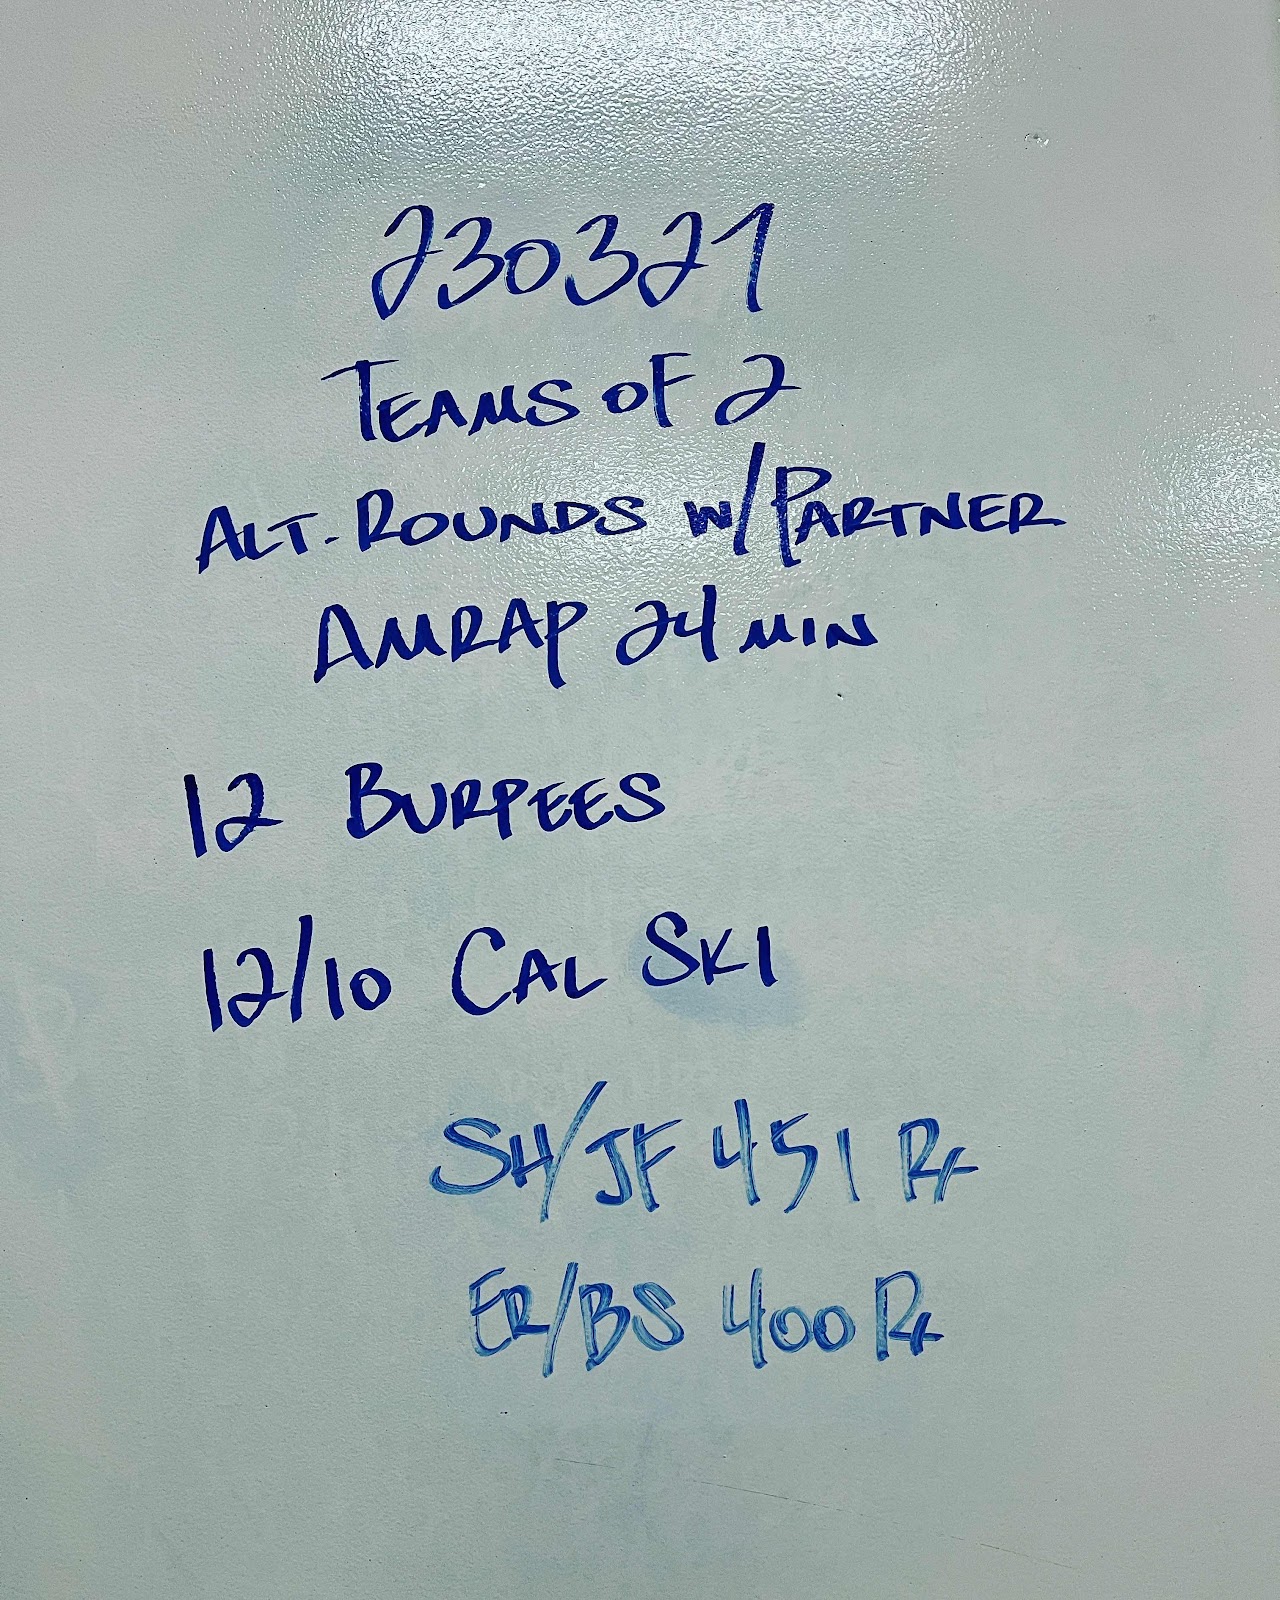 230321
TEAMS OF 2
ALT. ROUNDS W/PARTNER
AMRAP 24 MIN
12 BURPEES
12/10 CAL SKI
SH/JF 451 Rx
ER/BS 400 Rx